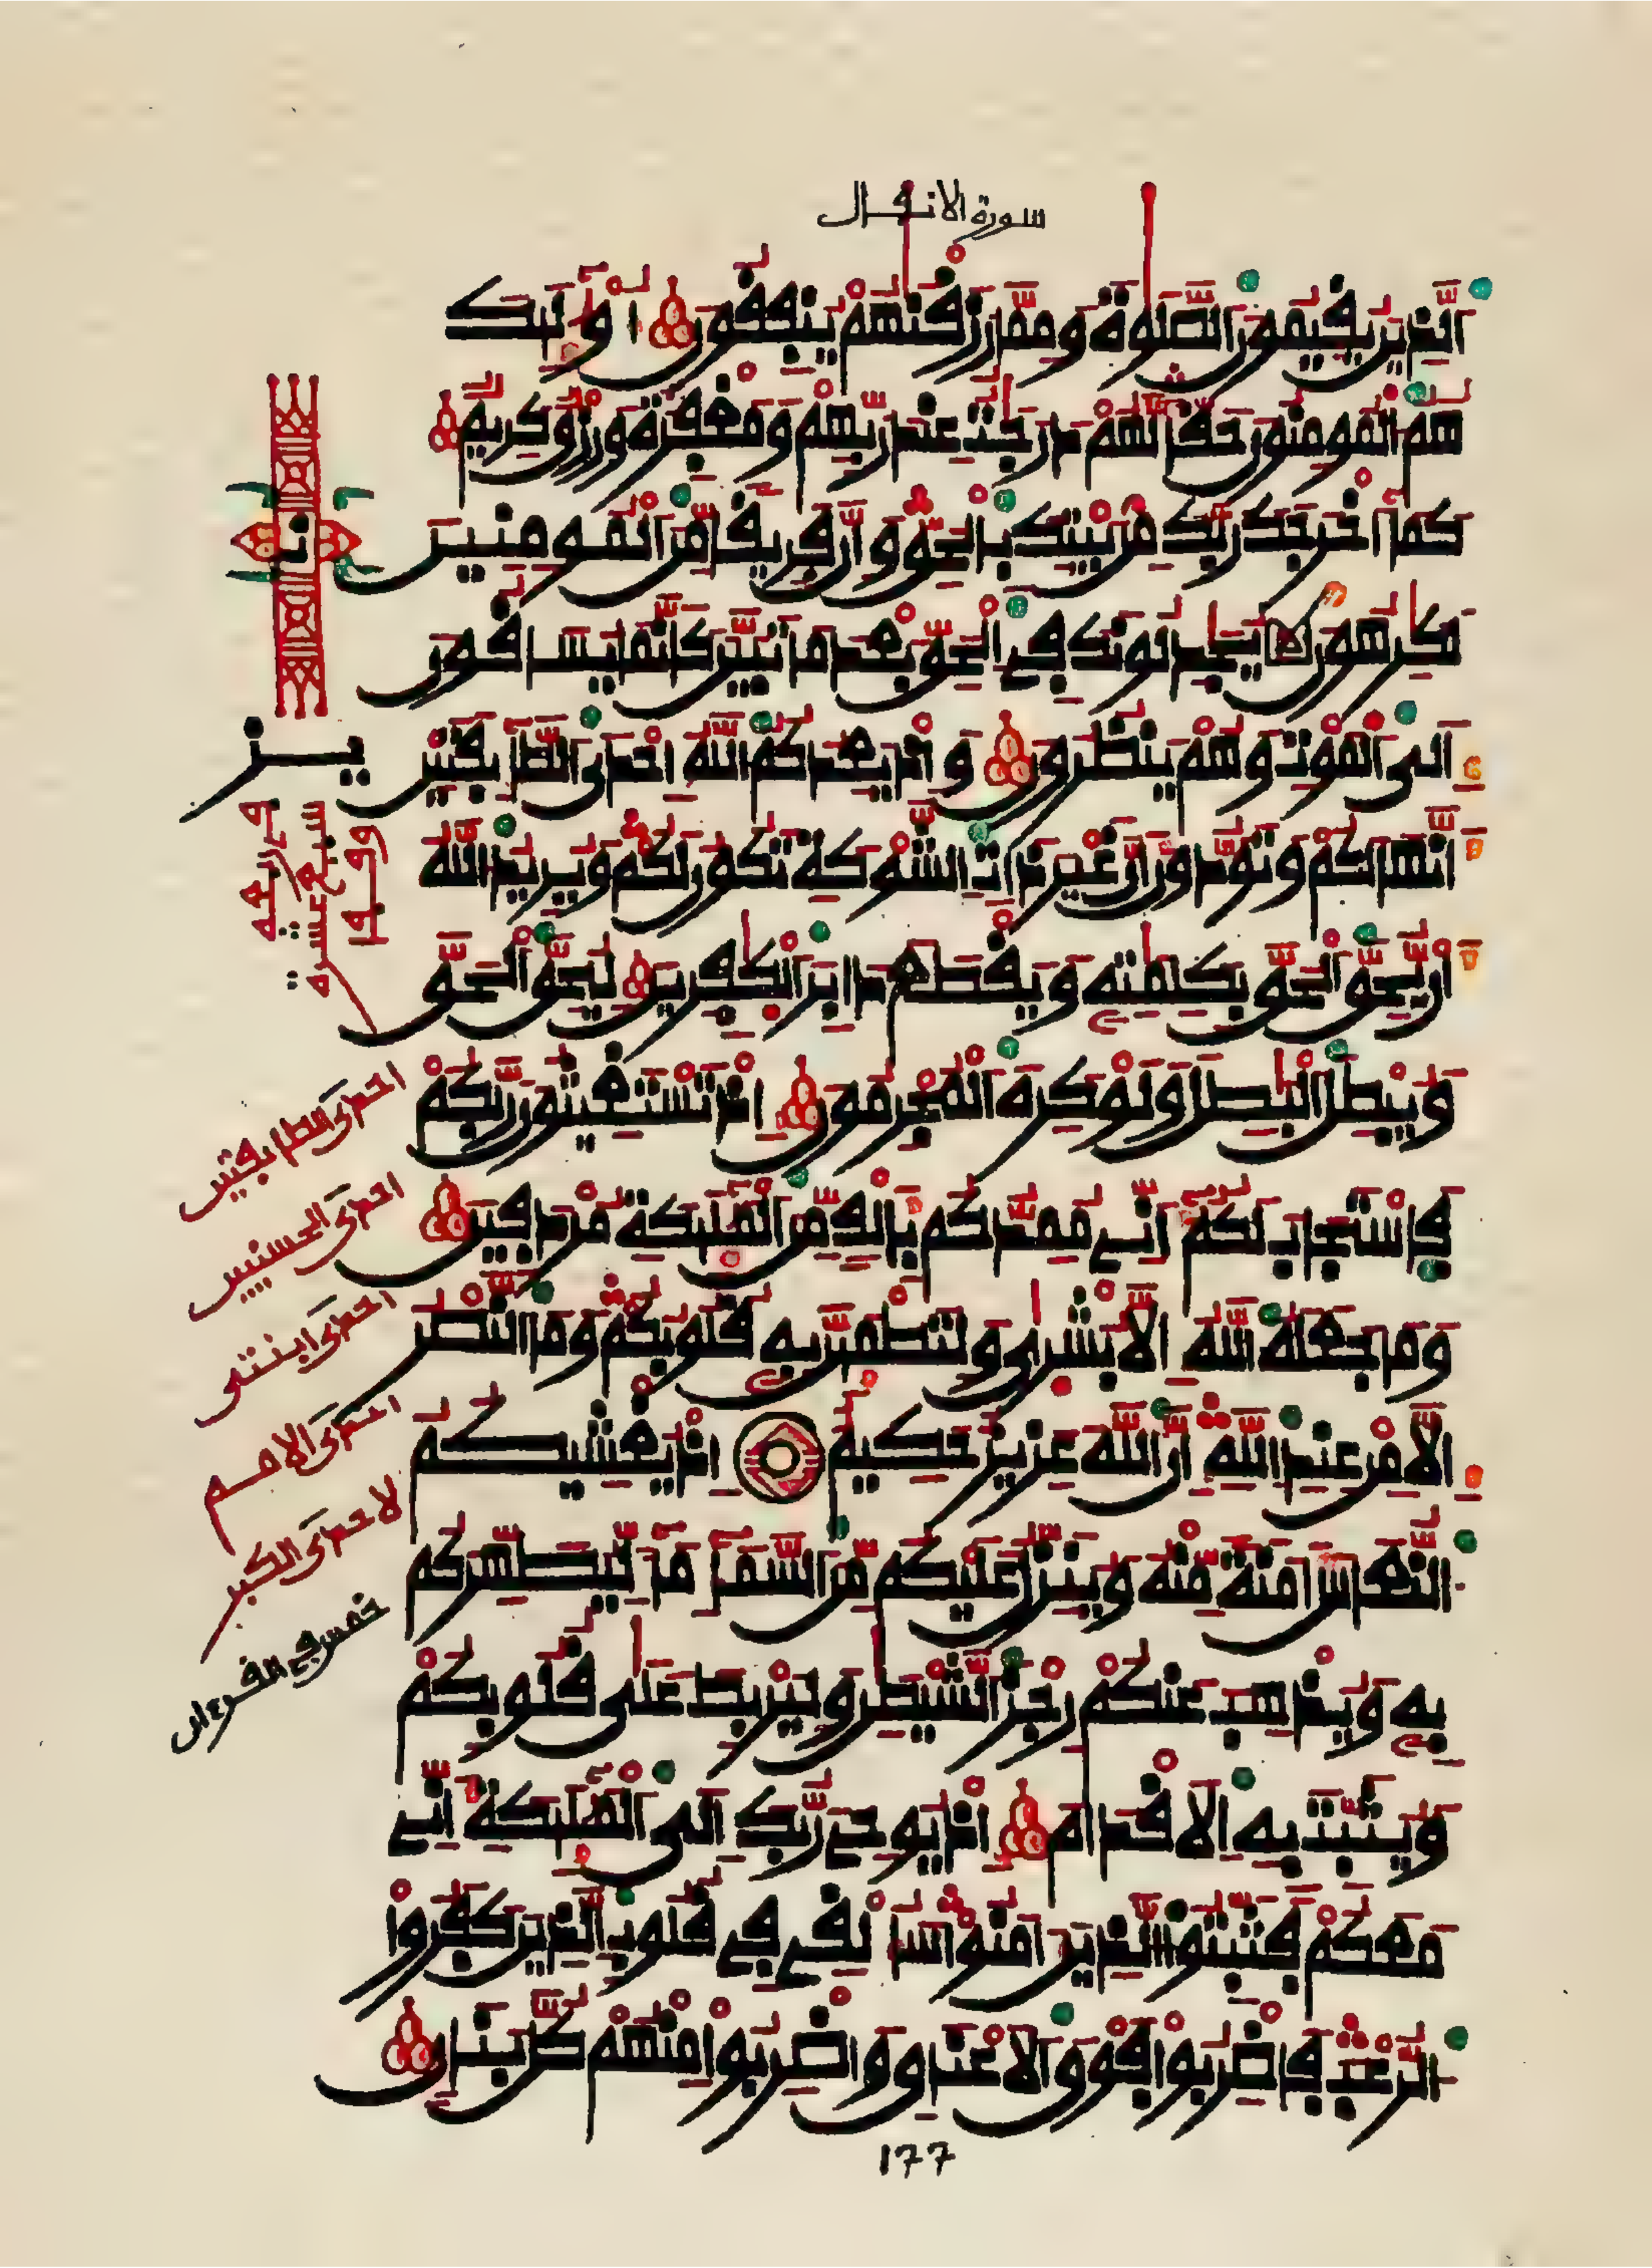 سورة الانفال
الذين يقيمون الصلوة ومما رزقنهم ينفقون اولئك
هم المومنون حقا لهم درجت عند ربهم ومغفرة ورزق كريم
كما اخرجك ربك من بيتك بالحق وان فريقا من المومنين
لكرهون يجدلونك في الحق بعد ما تبين كانما يساقون
الى الموت وهم ينظرون واذ يعدكم الله احدى الطايفتين
انها لكم وتودون ان غير ذات الشوكة تكون لكم ويريد الله
ان يحق الحق بكلمته ويقطع دابر الكفرين ليحق الحق
ويبطل البطل ولو كره المجرمون اذ تستغيثون ربكم
فاستجاب لكم اني ممدكم بالف من المليكة مردفين
وما جعله الله الا بشرى ولتطمين به قلوبكم وما النصر
الا من عند الله ان الله عزيز حكيم اذ يغشيكم
النعاس امنة منه وينزل عليكم من السما ما ليطهركم
به ويذهب عنكم رجز الشيطن وليربط على قلوبكم
ويثبت به الاقدام اذ يوحى ربك الى المليكة اني
معكم فثبتوا الذين امنوا سالقى في قلوب الذين كفروا
الرعب فاضربوا فوق الاعناق واضربوا منهم كل بنان
١٧٧
ن
يز
سبع عشرة
احدى الطايفتين
احدى الحسنيين
احدى ابنتى
احدى الامم
لاحدى الكبر
خمس في القرءان